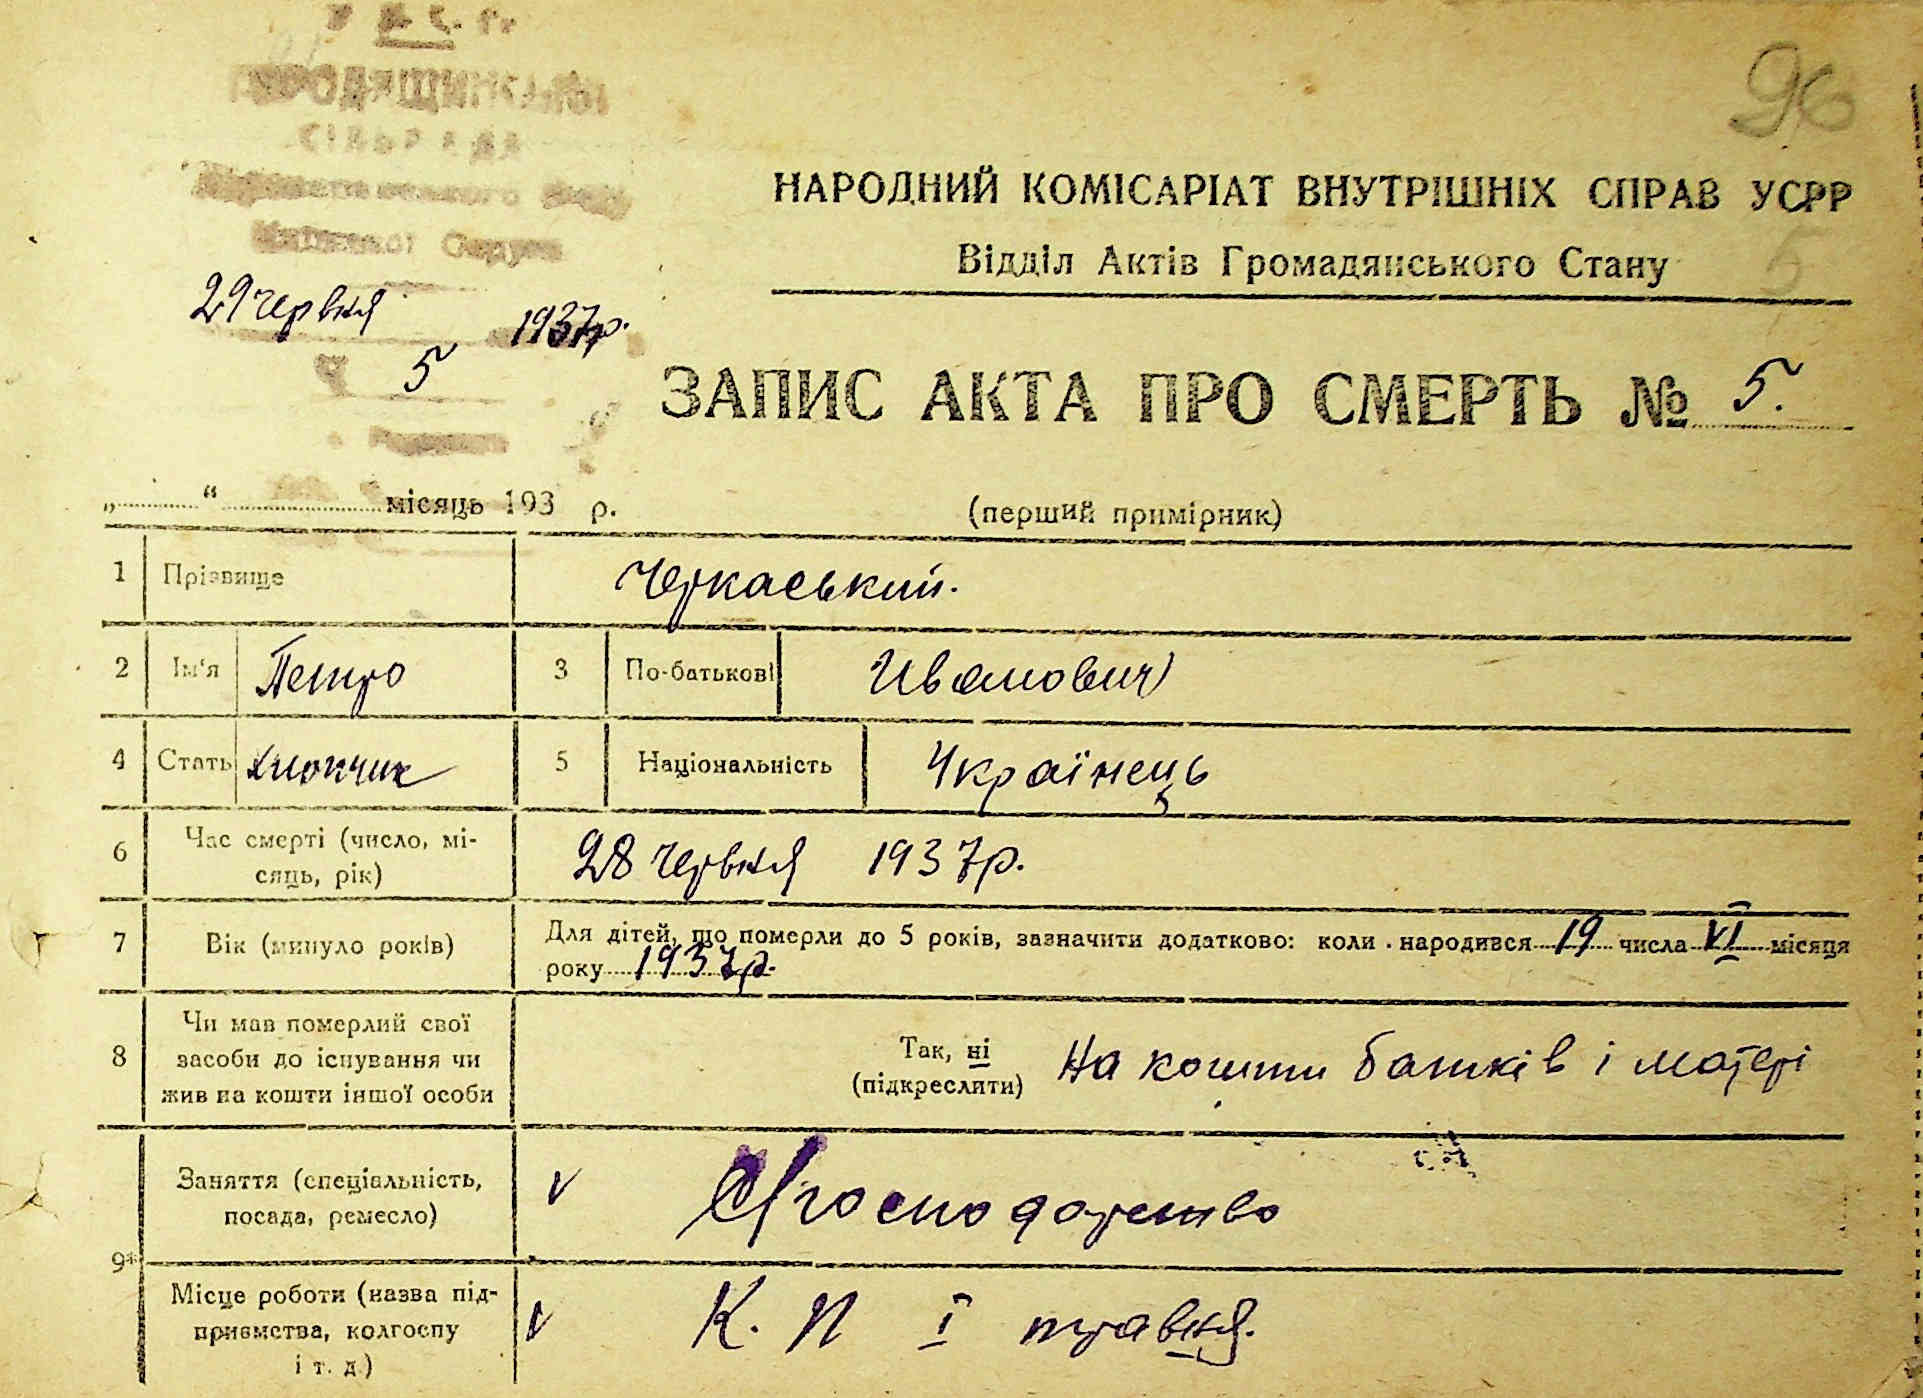 96
НАРОДНИЙ КОМІСАРІАТ ВНУТРІШНІХ СПРАВ УСРР
Відділ Актів Громадянського Стану
5
29 червня 1937р.
5
ЗАПИС АКТА ПРО СМЕРТЬ № 5.
„ “ місяць 193 р.
(перший примірник)
1 Прізвище Черкаський.
2 Ім'я Петро 3 По-батькові Иванович
4 Стать хлопчик 5 Національність Українець
6 Час смерті (число, мі-
сяць, рік) 28 червня 1937р.
7 Вік (минуло років) Для дітей, що померли до 5 років, зазначити додатково: коли народився 19 числа VI місяця
року 1937р.
8 Чи мав померлий свої
засоби до існування чи
жив на кошти іншої особи
Так, ні
(підкреслити)
На кошти батьків і матері
9* Заняття (спеціальність,
посада, ремесло) v С/господарство
Місце роботи (назва під-
приємства, колгоспу
і т. д.) v К. П І травня.